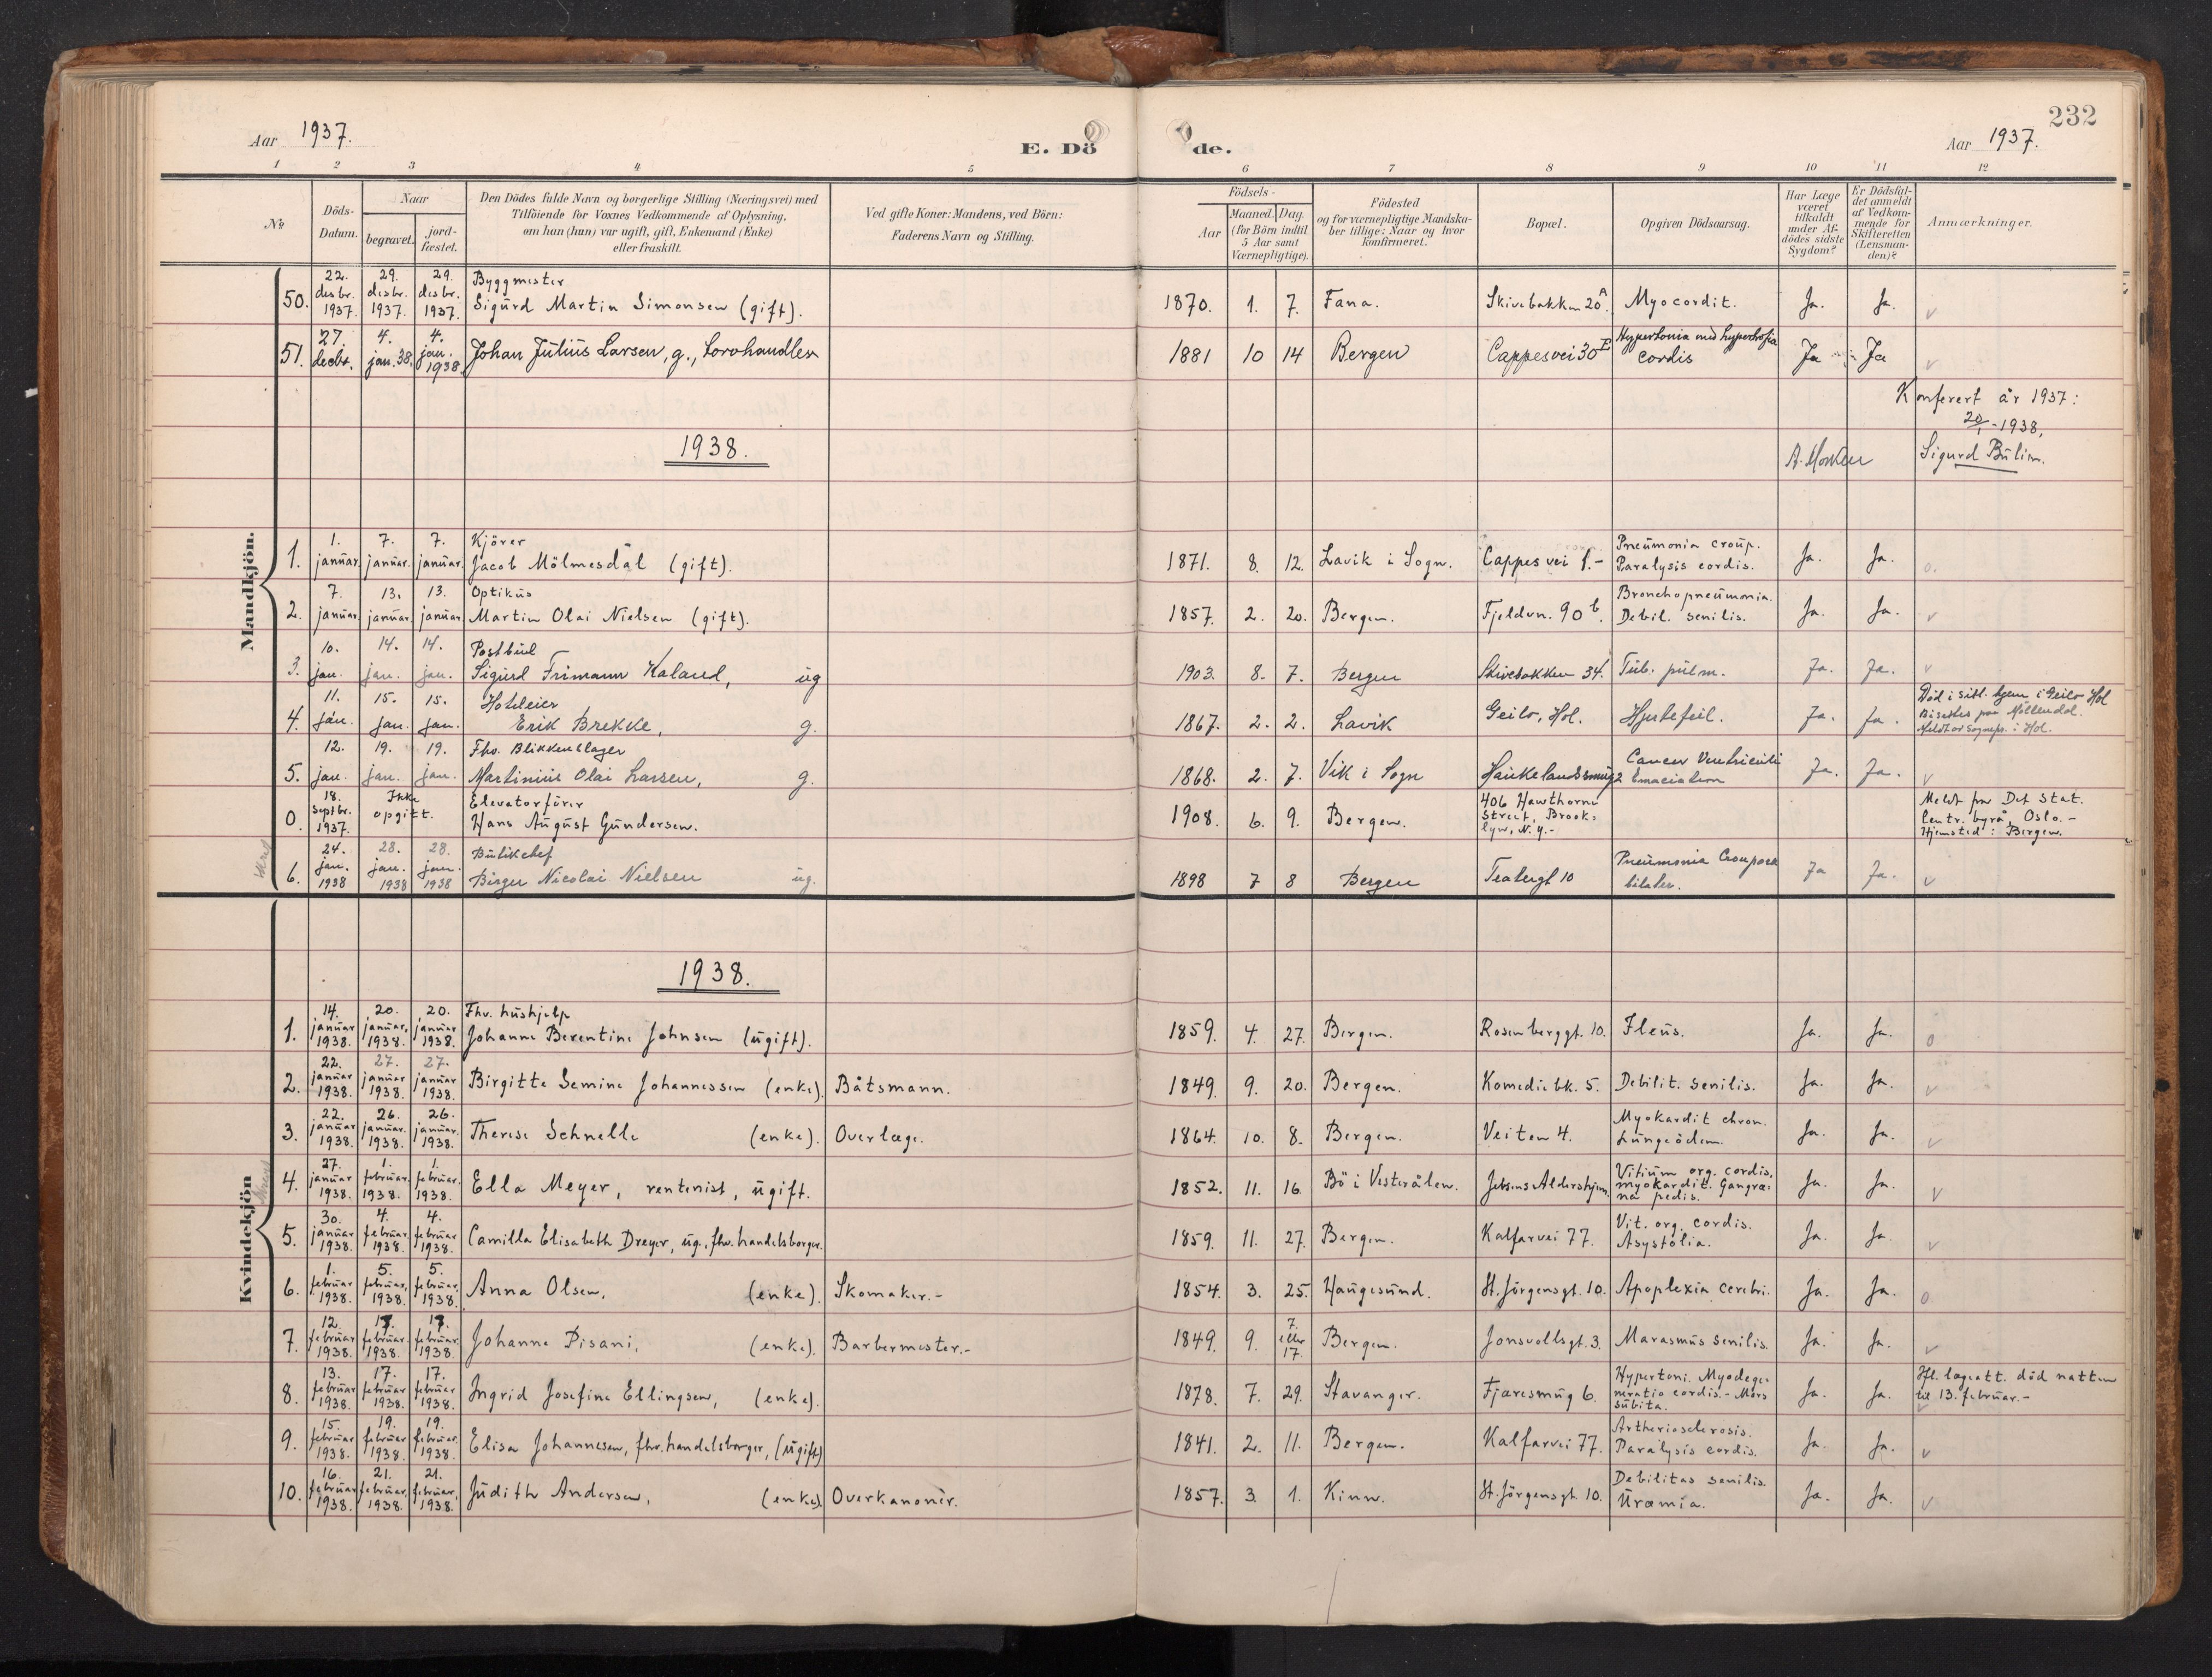 232
Aar 1937.
E. Döde.
Aar 1937.
1 2 3 4 5 6 7 8 9 10 11 12
№
Döds-Datum.
Naar
begravet.
jord-fæstet.
Den Dödes fulde Navn og borgerlige Stilling (Næringsvei) med
Tilföiende for Voxnes Vedkommende af Oplysning,
om han (hun) var ugift, gift, Enkemand (Enke)
eller fraskilt.
Ved gifte Koner: Mandens, ved Börn:
Faderens Navn og Stilling.
Födsels-
Aar
Maaned. Dag.
(for Börn indtil
5 Aar samt
Værnepligtige).
Födested
og for værnepligtige Mandska-
ber tillige: Naar og hvor
konfirmeret.
Bopæl.
Opgiven Dödsaarsag.
Har Læge
været
tilkaldt
under Af-
dödes sidste
Sygdom?
Er Dödsfal-
det anmeldt
af Vedkom-
mende for
Skifteretten
(Lensman-
den)?
Anmærkninger.
Mandkjön.
50. 22. desbr. 1937. 29. desbr. 1937. 29. desbr. 1937. Byggmester
Sigurd Martin Simonsen (gift). 1870. 1. 7. Fana. Skivebakken 20A. Myocordit. Ja. Ja. v
51. 27. decbr. 4. jan. 38. 4. jan. 1938 Johan Julius Larsen, g., Torvhandler 1881 10 14 Bergen Cappesvei 30 Hypertonia med hypertrofia
cordis Ja Ja v
Konferert år 1937:
20/1-1938,
1938.
Sigurd Bülim.
1. 1. januar. 7. januar. 7. januar. Kjörer
Jacob Mölmesdal (gift). 1871. 8. 12. Lavik i Sogn. Cappes vei 1.- Pneumonia croup.
Paralysis cordis. Ja. Ja. o.
2. 7. januar. 13. januar. 13. januar. Optikus
Martin Olai Nielsen (gift). 1857. 2. 20. Bergen. Fjeldvn. 90b. Bronchopneumonia.
Debil. senilis. Ja. Ja. v
3. 10. jan. 14. jan. 14. jan. Postbud
Sigurd Frimann Kaland, ug 1903. 8. 7. Bergen Skivebakken 34. Tub. pulm. Ja. Ja. v
4. 11. jan. 15. jan. 15. jan. Hoteleier
Erik Brekke, g. 1867. 2. 2. Lavik Geilo, Hol. Hjertefeil. Ja. Ja. Död i sitt hjem i Geilo Hol
Bisettes paa Möllendal.
Meldt av sognepr. i Hol.
5. 12. jan. 19. jan. 19. jan. Fhv. Blikkenslager
Martinius Olai Larsen, g. 1868. 2. 7. Vik i Sogn Haukelandsmug 2 Cancer Ventriculi
Emaciatum Ja. Ja. v
0. 18. septbr. 1937. Ikke opgitt. Elevatorförer
Hans August Gundersen. 1908. 6. 9. Bergen. 406 Hawthorne
Street, Brook=
lyn, N.Y.- Meldt fra Det Stat.
Centr. byrå, Oslo.-
Hjemsted: Bergen.
6. 24. jan. 1938 28. jan. 1938 28. jan. 1938 Butikchef
Birger Nicolai Nielsen ug. 1898 7 8 Bergen Teatergt 10 Pneumonia Crouposa
bilater. Ja Ja. v
Kvindekjön
1938.
1. 14. januar 1938. 20. januar, 1938. 20. januar 1938. Fhv. hushjelp
Johanne Berentine Johnsen (ugift). 1859. 4. 27. Bergen. Rosenberggt. 10. Ileus. Ja. Ja. o
2. 22. januar 1938. 27. januar 1938. 27. januar 1938. Birgitte Semine Johannessen (enke). Båtsmann. 1849. 9. 20. Bergen. Komediebk. 5. Debilit. senilis. Ja. Ja. v
3. 22. januar 1938. 26. januar. 1938. 26. januar 1938. Therese Schnelle (enke). Overlæge. 1864. 10. 8. Bergen. Veiten 4. Myokardit chron.
Lungeödem. Ja. Ja. v
4. 27. januar 1938. 1. februar 1938. 1. februar. 1938. Ella Meyer, rentenist, ugift. 1852. 11. 16. Bö i Vesterålen. Jebsens Aldershjem. Vitium org. cordis,
myokardit. Gangræ=
na pedis. Ja. Ja. v
5. 30. januar 1938. 4. februar 1938. 4. februar 1938. Camilla Elisabeth Dreyer, ug., fhv. handelsborger. 1859. 11. 27. Bergen. Kalfarvei 77. Vit. org. cordis.
Asystolia. Ja. Ja. v
6. 1. februar 1938. 5. februar, 1938. 5. februar. 1938. Anna Olsen, (enke). Skomaker.- 1854. 3. 25. Haugesund. St. Jörgensgt. 10. Apoplexia cerebri. Ja. Ja. o
7. 12. februar 1938. 17. februar 1938. 17. februar 1938. Johanne Pisani, (enke). Barbermester.- 1849. 9. 7. eller 17. Bergen. Jonsvollsgt. 3. Marasmus senilis. Ja. Ja. v
8. 13. februar 1938. 17. februar 1938. 17. februar 1938. Ingrid Josefine Ellingsen, (enke). 1878. 7. 29. Stavanger. Fjæresmug 6. Hypertoni. Myodege=
neratio cordis.- Mors
subita. Ja. Ja. Ifl. lægeatt. död natten
til 13. februar.-
9. 15. februar 1938. 19. februar 1938. 19. februar. 1938. Elisa Johannesen, fhv. handelsborger, (ugift) 1841. 2. 11. Bergen. Kalfarvei 77. Artheriosclerosis.
Paralysis cordis. Ja. Ja. v
10. 16. februar 1938. 21. februar, 1938. 21. februar, 1938. Judith Andersen, (enke). Overkanonér. 1857. 3. 1. Kinn. St. Jörgensgt. 10. Debilitas senilis.
Uræmia. Ja. Ja. v